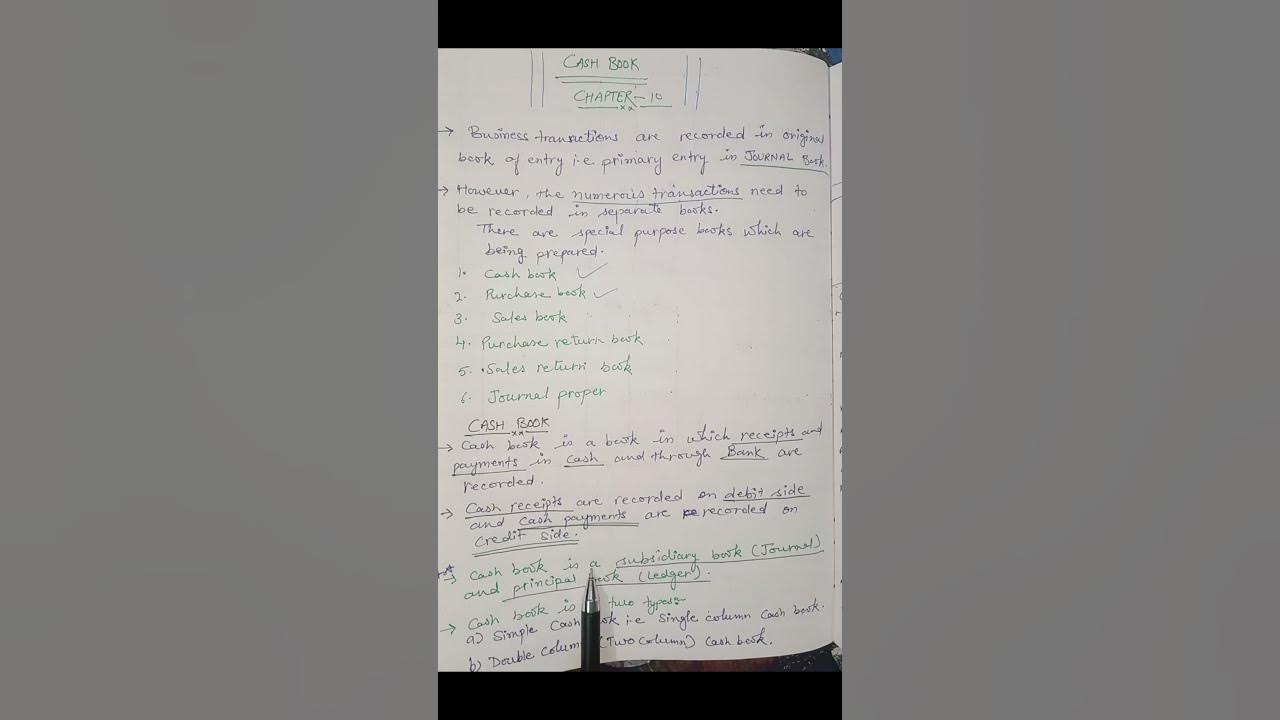 CASH BOOK
CHAPTER - 10
→ Business transactions are recorded in original
book of entry i.e. primary entry in JOURNAL Book.
→ However, the numerous transactions need to
be recorded in separate books.
There are special purpose books which are
being prepared.
1. Cash book ✓
2. Purchase book ✓
3. Sales book
4. Purchase return book
5. Sales return book
6. Journal proper
CASH BOOK
→ Cash book is a book in which receipts and
payments in cash and through Bank are
recorded.
→ Cash receipts are recorded on debit side
and cash payments are recorded on
credit side.
→ Cash book is a subsidiary book (Journal)
and principal book (Ledger).
→ Cash book is two types:-
a) Simple Cash i.e. Single column Cash book.
b) Double (Two Column) Cash book.